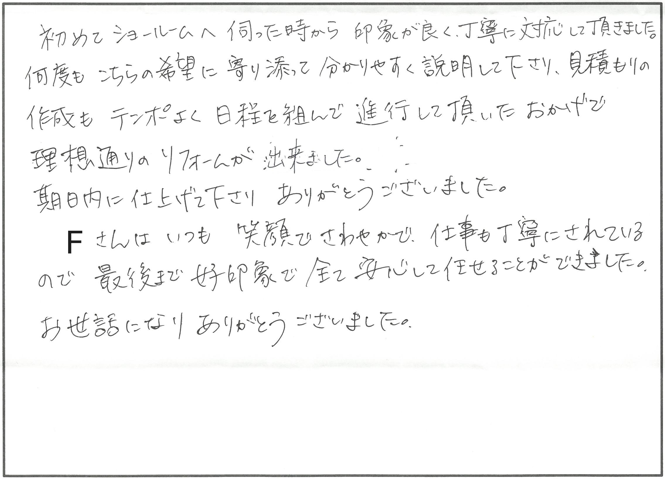 初めてショールームへ伺った時から 印象が良く、丁寧に対応して頂きました。
何度も こちらの希望に寄り添って 分かりやすく説明して下さり、見積もりの
作成も テンポよく 日程を組んで 進行して頂いた おかげで
理想通りのリフォームが 出来ました。
期日内に仕上げて下さり ありがとうございました。
Fさんは いつも 笑顔で さわやかで、仕事も丁寧にされている
ので 最後まで 好印象で 全て 安心して任せることができました。
お世話になり ありがとうございました。